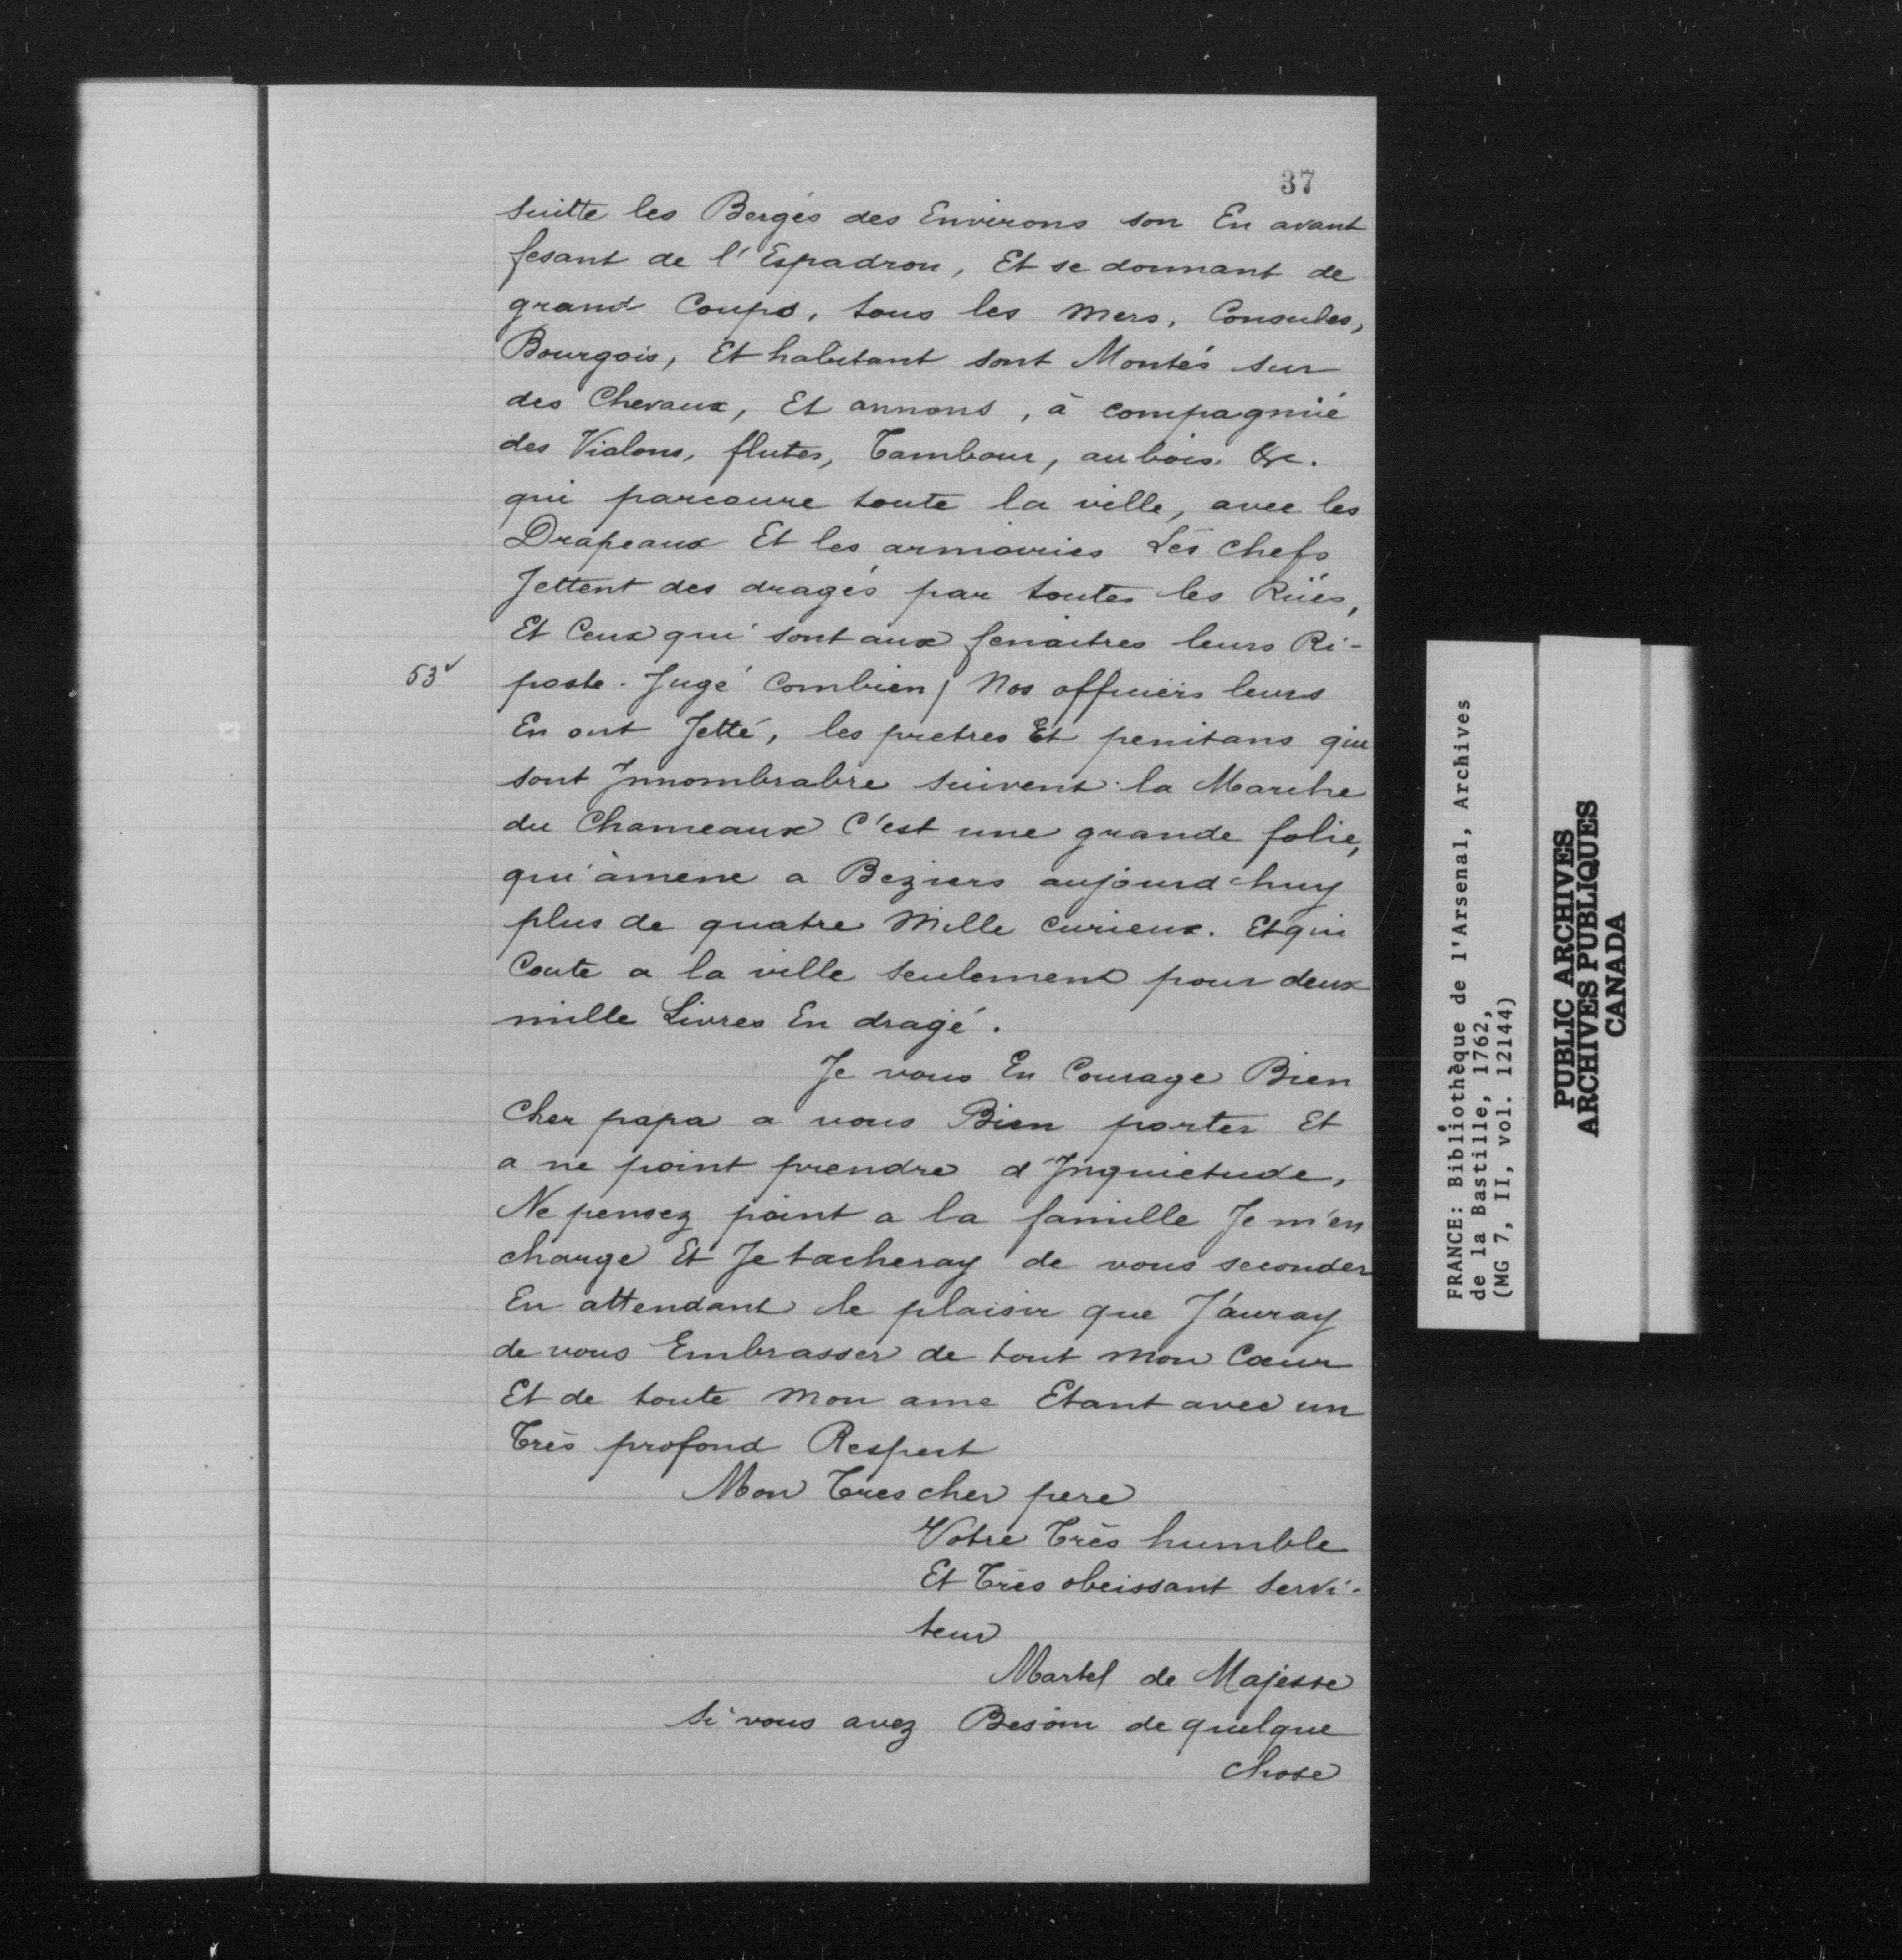 37
suitte les Bergés des Environs son En avant
fesant de l'Espadron, Et se donnant de
grand Coups, tous les Mers, Consules,
Bourgois, Et habitant sont Montés sur
des Chevaux, Et annons, à compagnié
des Vialons, flutes, Tambour, aubois, &c.
qui parcoure toute la ville, avec les
Drapeaux Et les armoiries Les chefs
Jettent des dragés par toutes les Rües,
Et Ceux qui sont aux fenaitres leurs Ri-
53v
poste. Jugé Combien, Nos officiers leurs
En ont Jetté, les pretres Et penitans qui
sont Innombrabre suivent la Marche
du Chameaux C'est une grande folie,
qui amene a Beziers aujourd'huy
plus de quatre Mille curieux. Et qui
Coute a la ville seulement pour deux
mille Livres En dragé.
Je vous En Courage Bien
Cher papa a vous Bien porter Et
a ne point prendre d'Inquietude,
Ne pensez point a la famille Je m'en
charge Et Je tacheray de vous seconder
En attendant le plaisir que J'auray
de vous Embrasser de tout Mon Cœur
Et de toute Mon ame Etant avec un
Très profond Respect
Mon Tres cher pere
Votre Très humble
Et Très obeissant Servi-
teur
Martel de Majesse
Si vous avez Besoin de quelque
chose
FRANCE: Bibliothèque de l'Arsenal, Archives
de la Bastille, 1762,
(MG 7, II, vol. 12144)
PUBLIC ARCHIVES
ARCHIVES PUBLIQUES
CANADA